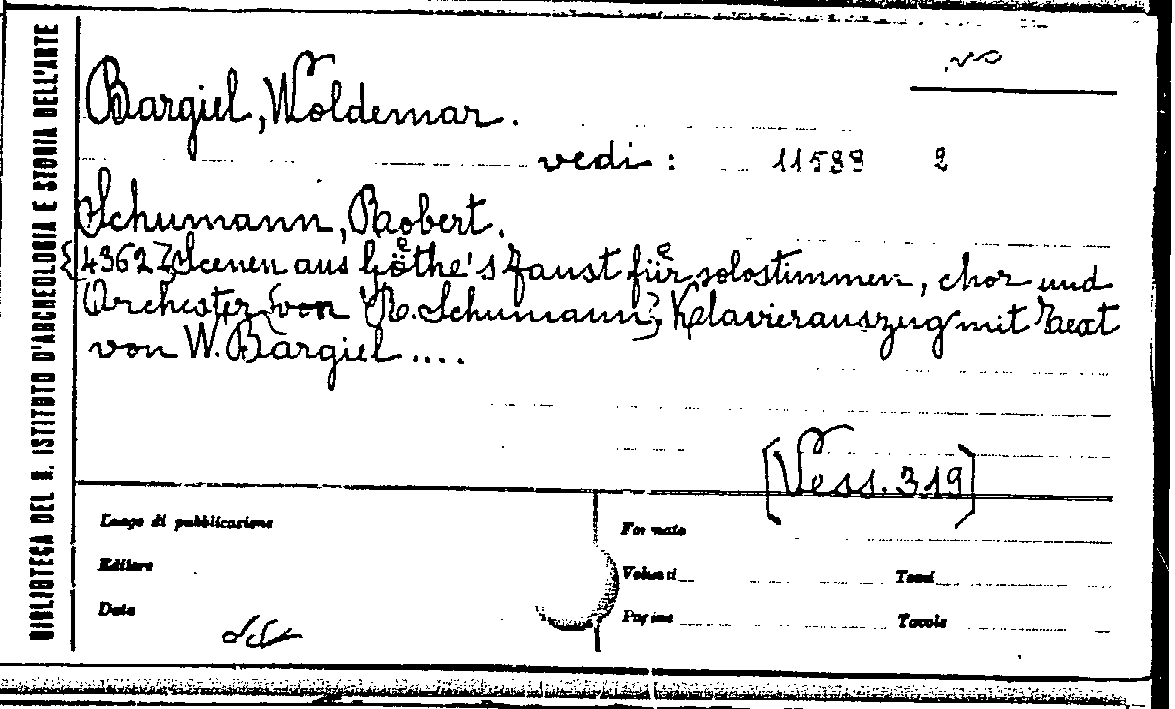 BIBLIOTECA DEL R. ISTITUTO D'ARCHEOLOGIA E STORIA DELL'ARTE
Bargiel, Woldemar.
vedi: 11588 2
Schumann, Robert.
{4362} Scenen aus Göthe's Faust für solostimmen, chor und
Orchester {von R. Schumann}, Klavierauszug mit Text
von W. Bargiel ....
[Vess. 319]
Luogo di pubblicazione
Editore
Data
Formato
Volumi Tomi
Pagine Tavole